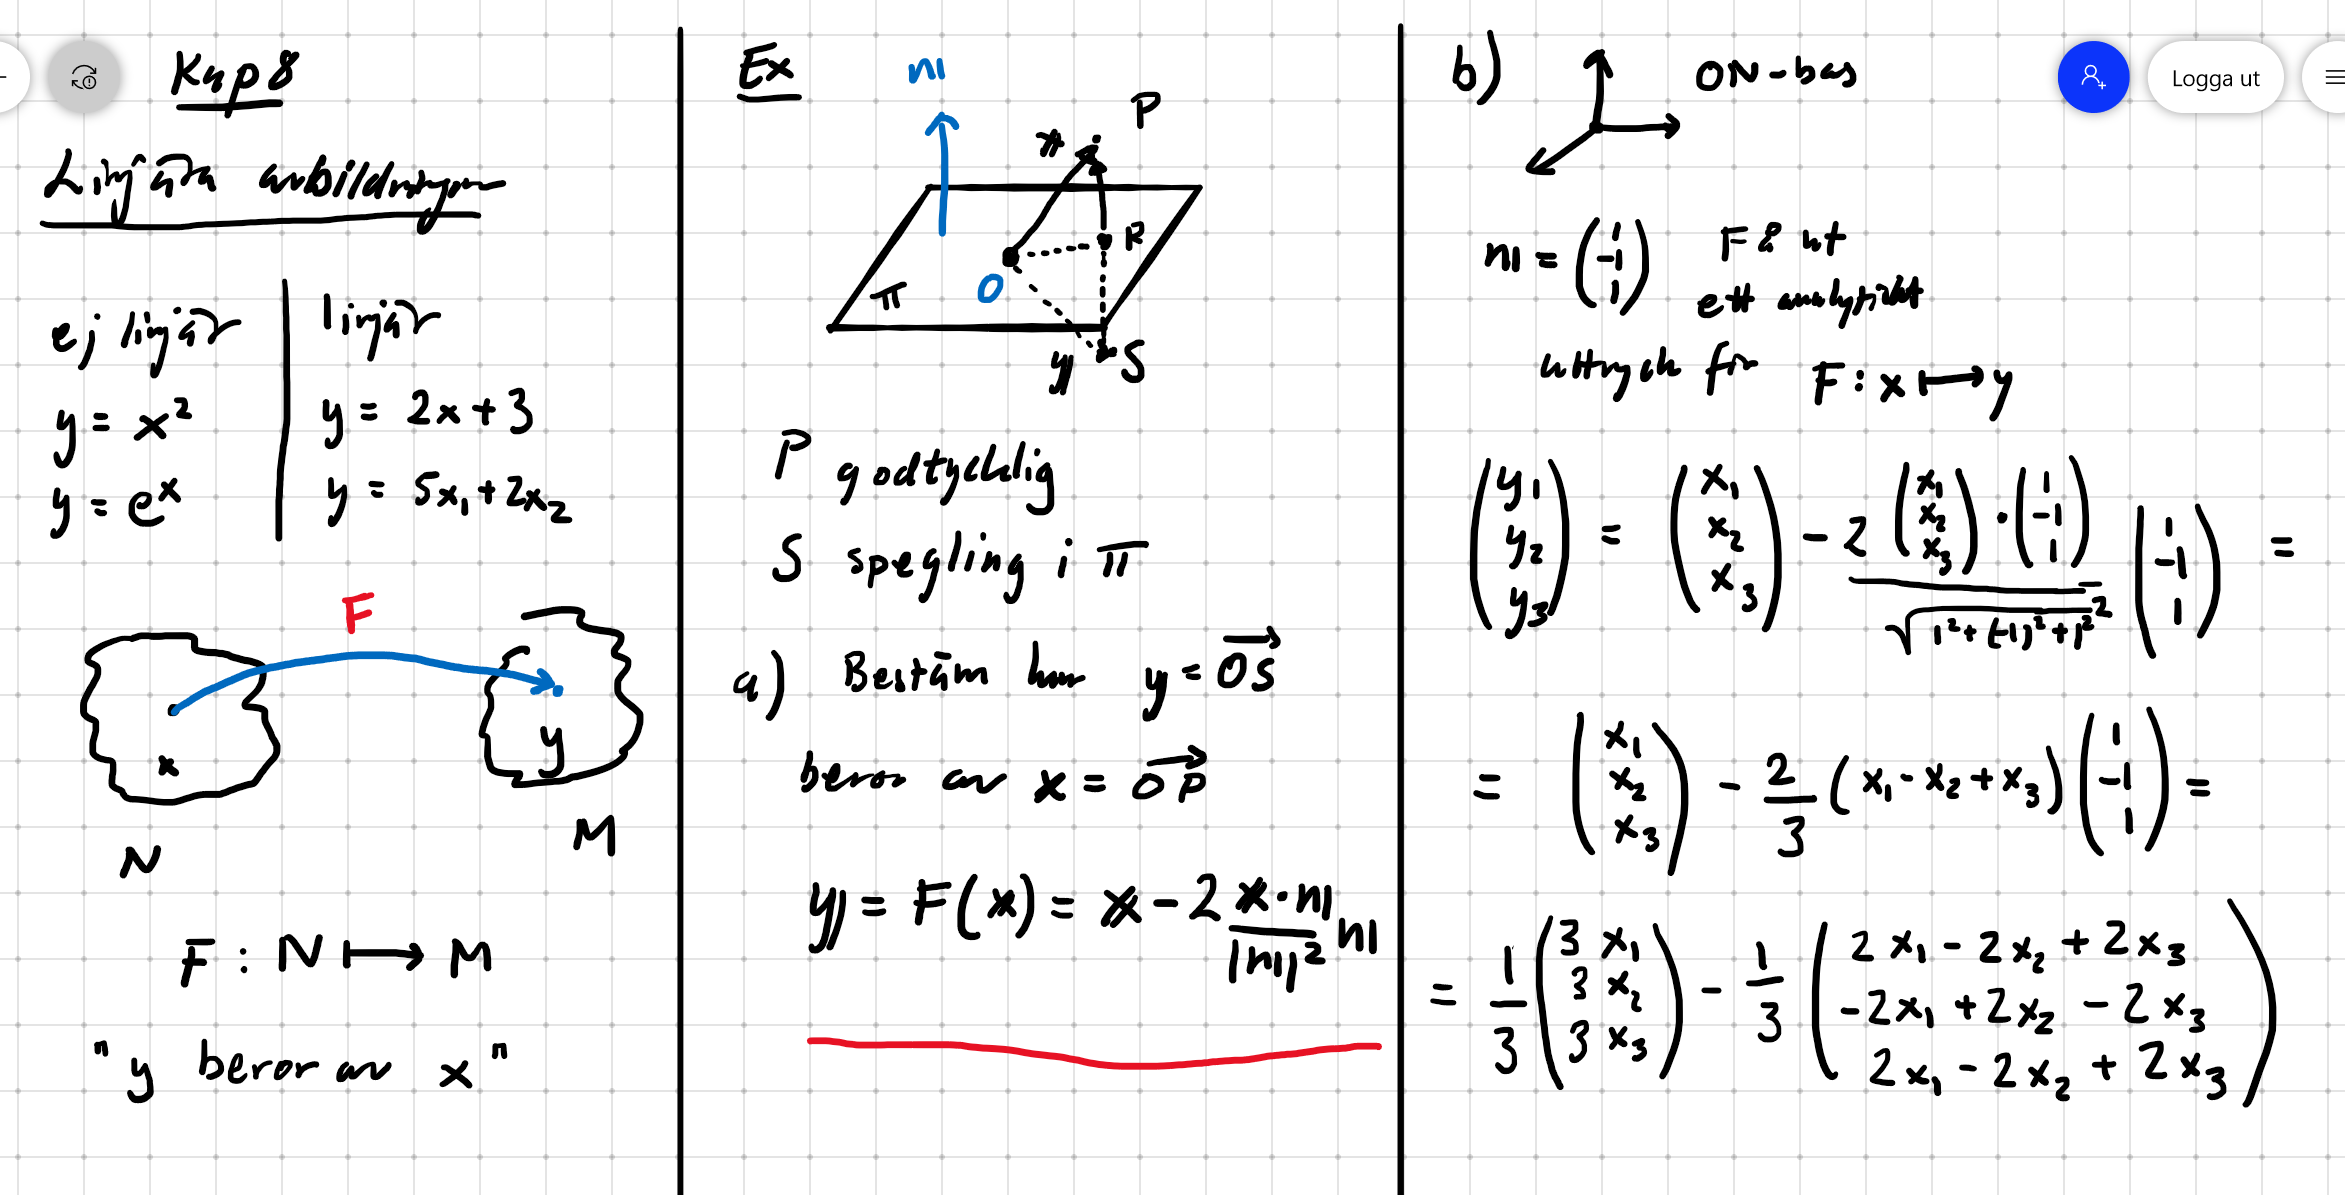 Kap 8
Linjära avbildningar
ej linjär
y = x²
y = eˣ
linjär
y = 2x + 3
y = 5x₁ + 2x₂
F
x
y
N
M
F : N ⟼ M
"y beror av x"
Ex
n
P
x
R
O
π
y
S
P godtycklig
S spegling i π
a) Bestäm hur y = \overrightarrow{OS}
beror av x = \overrightarrow{OP}
y = F(x) = x - 2 \frac{x·n}{|n|²} n
b)
ON-bas
n = \begin{pmatrix} 1 \\ -1 \\ 1 \end{pmatrix}
Få ut
ett analytiskt
uttryck för F : x ⟼ y
\begin{pmatrix} y₁ \\ y₂ \\ y₃ \end{pmatrix} = \begin{pmatrix} x₁ \\ x₂ \\ x₃ \end{pmatrix} - 2 \frac{\begin{pmatrix} x₁ \\ x₂ \\ x₃ \end{pmatrix} · \begin{pmatrix} 1 \\ -1 \\ 1 \end{pmatrix}}{\sqrt{1²+(-1)²+1²}²} \begin{pmatrix} 1 \\ -1 \\ 1 \end{pmatrix} =
= \begin{pmatrix} x₁ \\ x₂ \\ x₃ \end{pmatrix} - \frac{2}{3} (x₁ - x₂ + x₃) \begin{pmatrix} 1 \\ -1 \\ 1 \end{pmatrix} =
= \frac{1}{3} \begin{pmatrix} 3x₁ \\ 3x₂ \\ 3x₃ \end{pmatrix} - \frac{1}{3} \begin{pmatrix} 2x₁ - 2x₂ + 2x₃ \\ -2x₁ + 2x₂ - 2x₃ \\ 2x₁ - 2x₂ + 2x₃ \end{pmatrix}
Logga ut